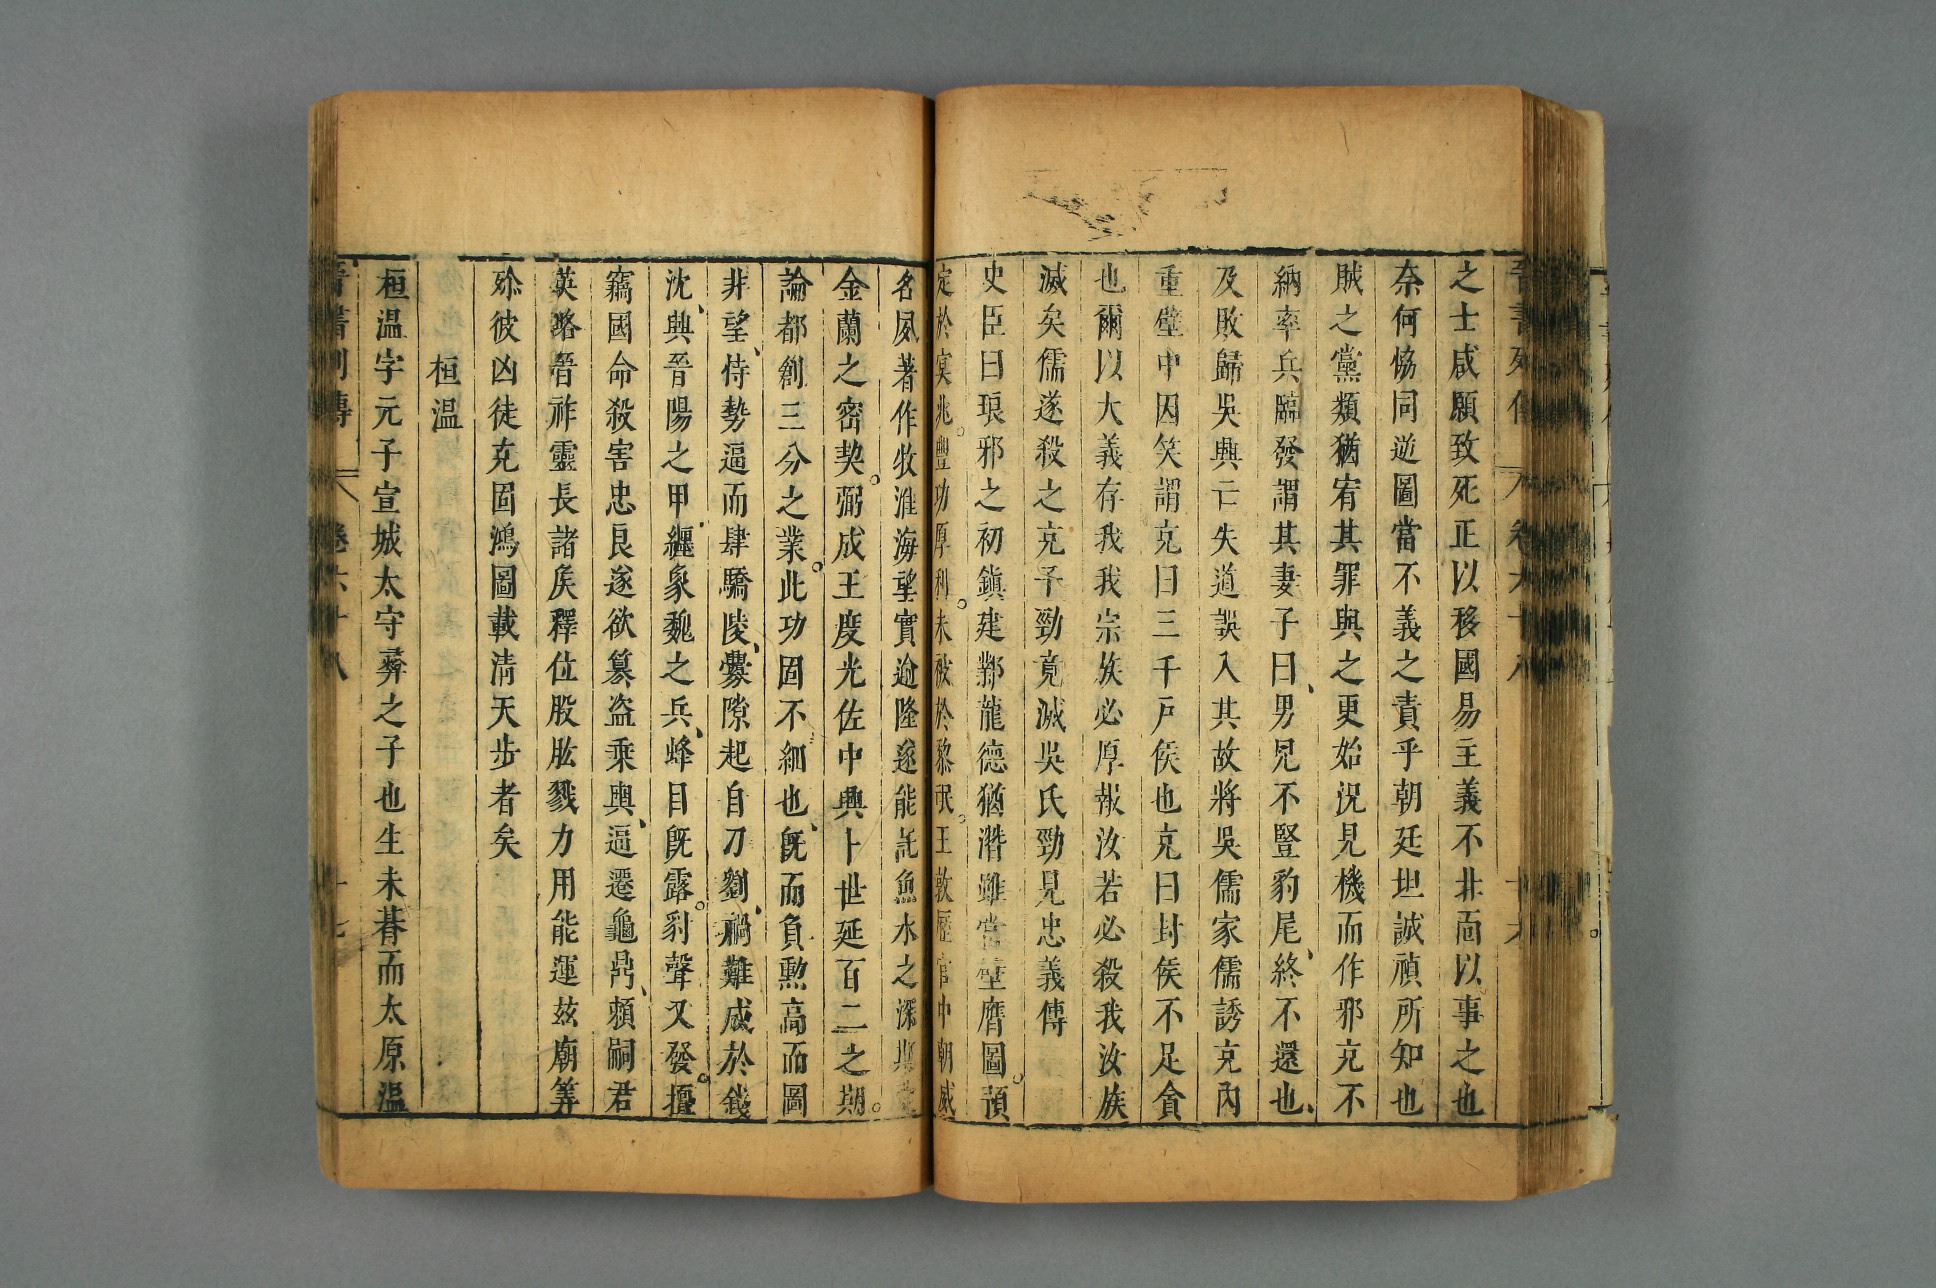 晉書列傳 卷六十八 十六
之士咸願致死正以移國易主義不北面以事之也
奈何恊同逆圖當不義之責乎朝廷坦誠禎所知也
賊之黨類猶宥其罪與之更始況見機而作邪充不
納率兵臨發謂其妻子曰男兒不豎豹尾終不還也
及敗歸吳興亡失道誤入其故將吳儒家儒誘充內
重壁中因笑謂充曰三千戶侯也充曰封侯不足貪
也爾以大義存我我宗族必厚報汝若必殺我汝族
滅矣儒遂殺之充子勁竟滅吳氏勁見忠義傳
史臣曰琅邪之初鎮建鄴龍德猶潛雖當璧膺圖預
定於冥兆豐功厚利未被於黎氓王敦歷官中朝威
名夙著作牧淮海望實逾隆遂能託魚水之深期
金蘭之密契弼成王度光佐中興卜世延百二之期
論都創三分之業此功固不細也旣而負勳高而圖
非望恃勢逼而肆驕陵釁隙起自刀劉禍難成於錢
沈興晉陽之甲纏象魏之兵蜂目旣露豺聲又發擅
竊國命殺害忠良遂欲篡盜乘輿逼遷龜鼎賴嗣君
英略晉祚靈長諸侯釋位股肱戮力用能運茲廟筭
殄彼凶徒克固鴻圖載清天步者矣
桓温
桓温字元子宣城太守彝之子也生未朞而太原温
晉書列傳 卷六十八 十七